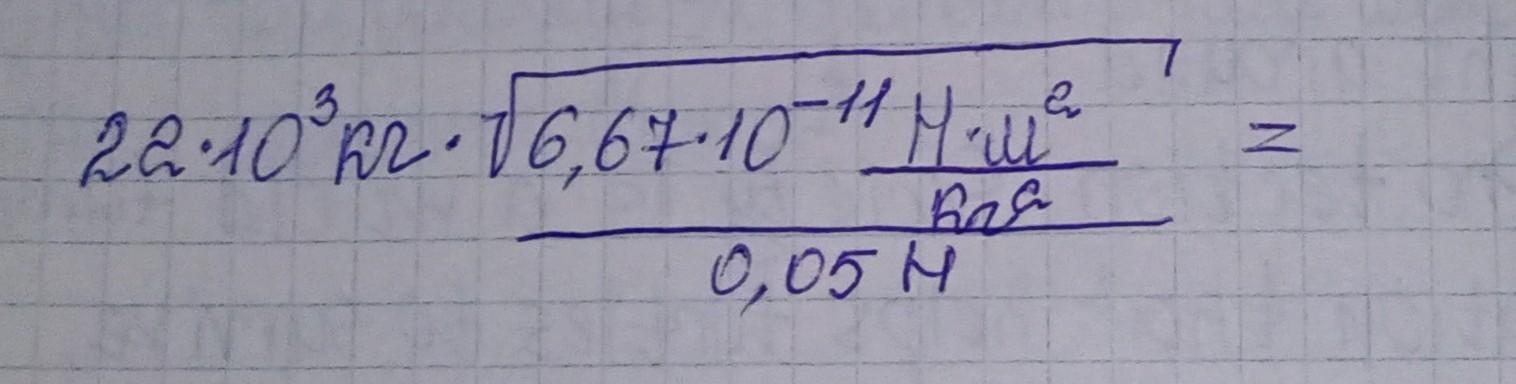 22·10³ кг · √6,67·10⁻¹¹ Н·м² =
кг²
0,05 Н